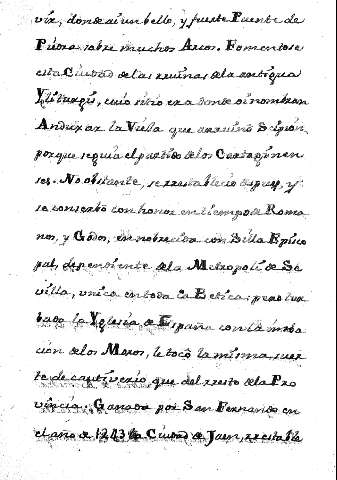 vir, donde ai un bello, y fuerte Puente de
Piedra sobre muchos Arcos. Fomentose
esta Ciudad de las rruinas de la antigua
Yliturgis, cuio sitio era donde oi nombran
Anduxar la Vieja que arruinó Scipion,
porque seguia el partido de los Cartaginen
ses. No obstante, se rrestablecio despues, y
se conserbó con honor en tiempo de Roma
nos, y Godos, ennoblecida con Silla Episco
pal, dependiente de la Metropoli de Se
villa, unica en toda la Betica: pero tur
bada la Yglesia de España con la imba
cion de los Moros, le tocó la misma suer
te de cautiverio que del rresto de la Pro
vincia. Ganada por San Fernando en
el año de 1243 la Ciudad de Jaen, rrestable